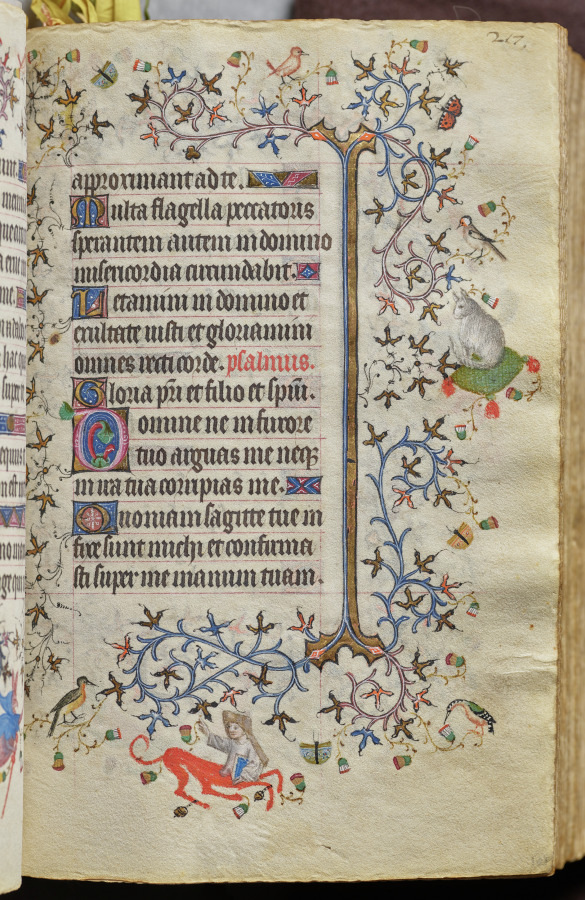 217.
approximant ad te.
Multa flagella peccatoris
sperantem autem in domino
misericordia circundabit.
Letamini in domino et
exultate iusti et gloriamini
omnes recti corde. psalmus.
Gloria pri et filio et spui.
Domine ne in furore
tuo arguas me neqz
in ira tua corripias me.
Quoniam sagitte tue in
fixe sunt michi et confirma
sti super me manum tuam.